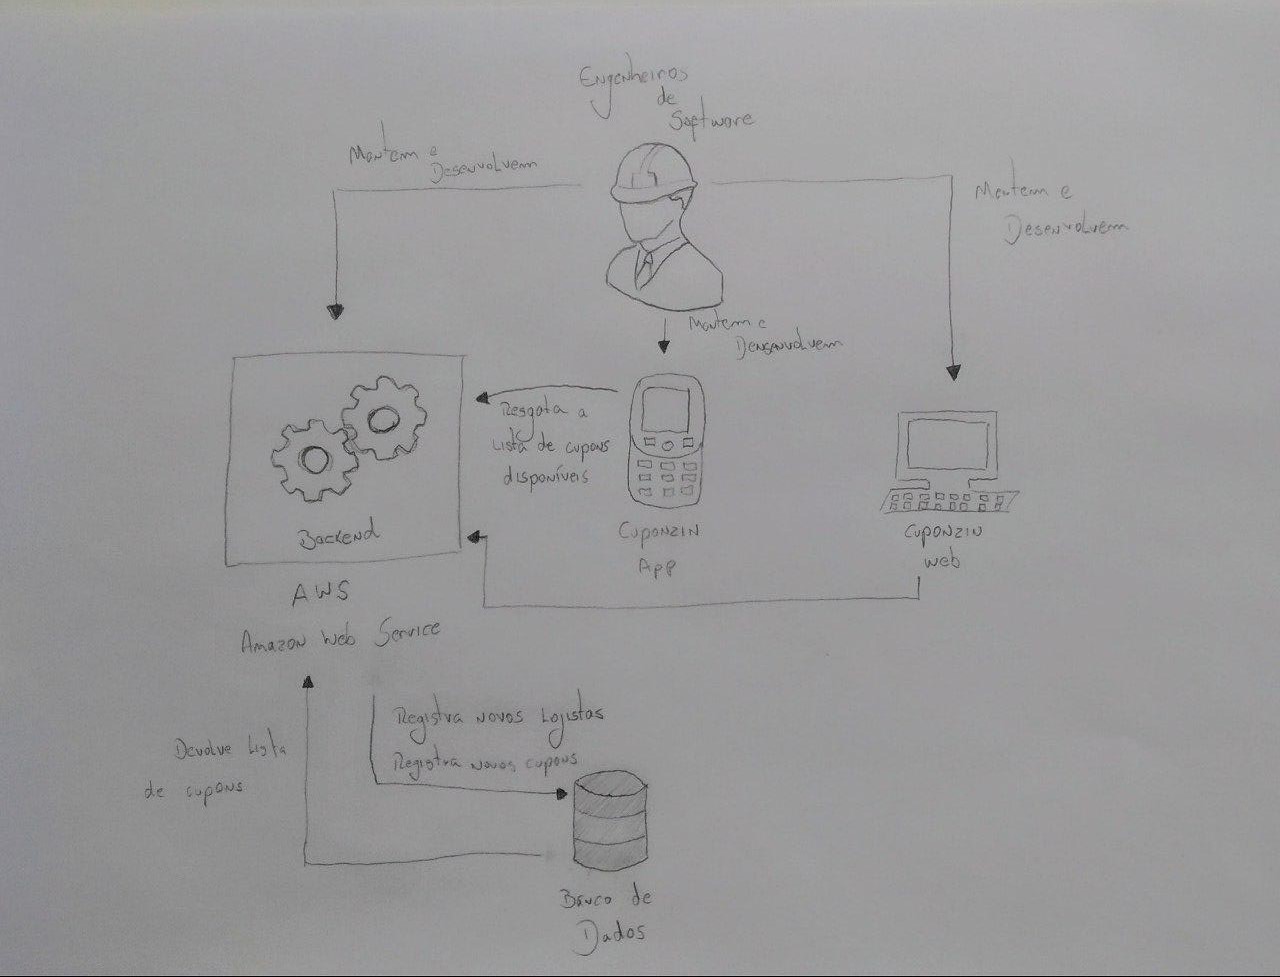 Engenheiros
de
Software
Mantem e
Desenvolvem
Mantem e
Desenvolvem
Mantem e
Densenvolvem
Resgata a
Lista de cupons
disponíveis
Backend
Cuponzin
App
Cuponzin
Web
AWS
Amazon Web Service
Registra novos Lojistas
Registra novos cupons
Devolve Lista
de cupons
Banco de
Dados